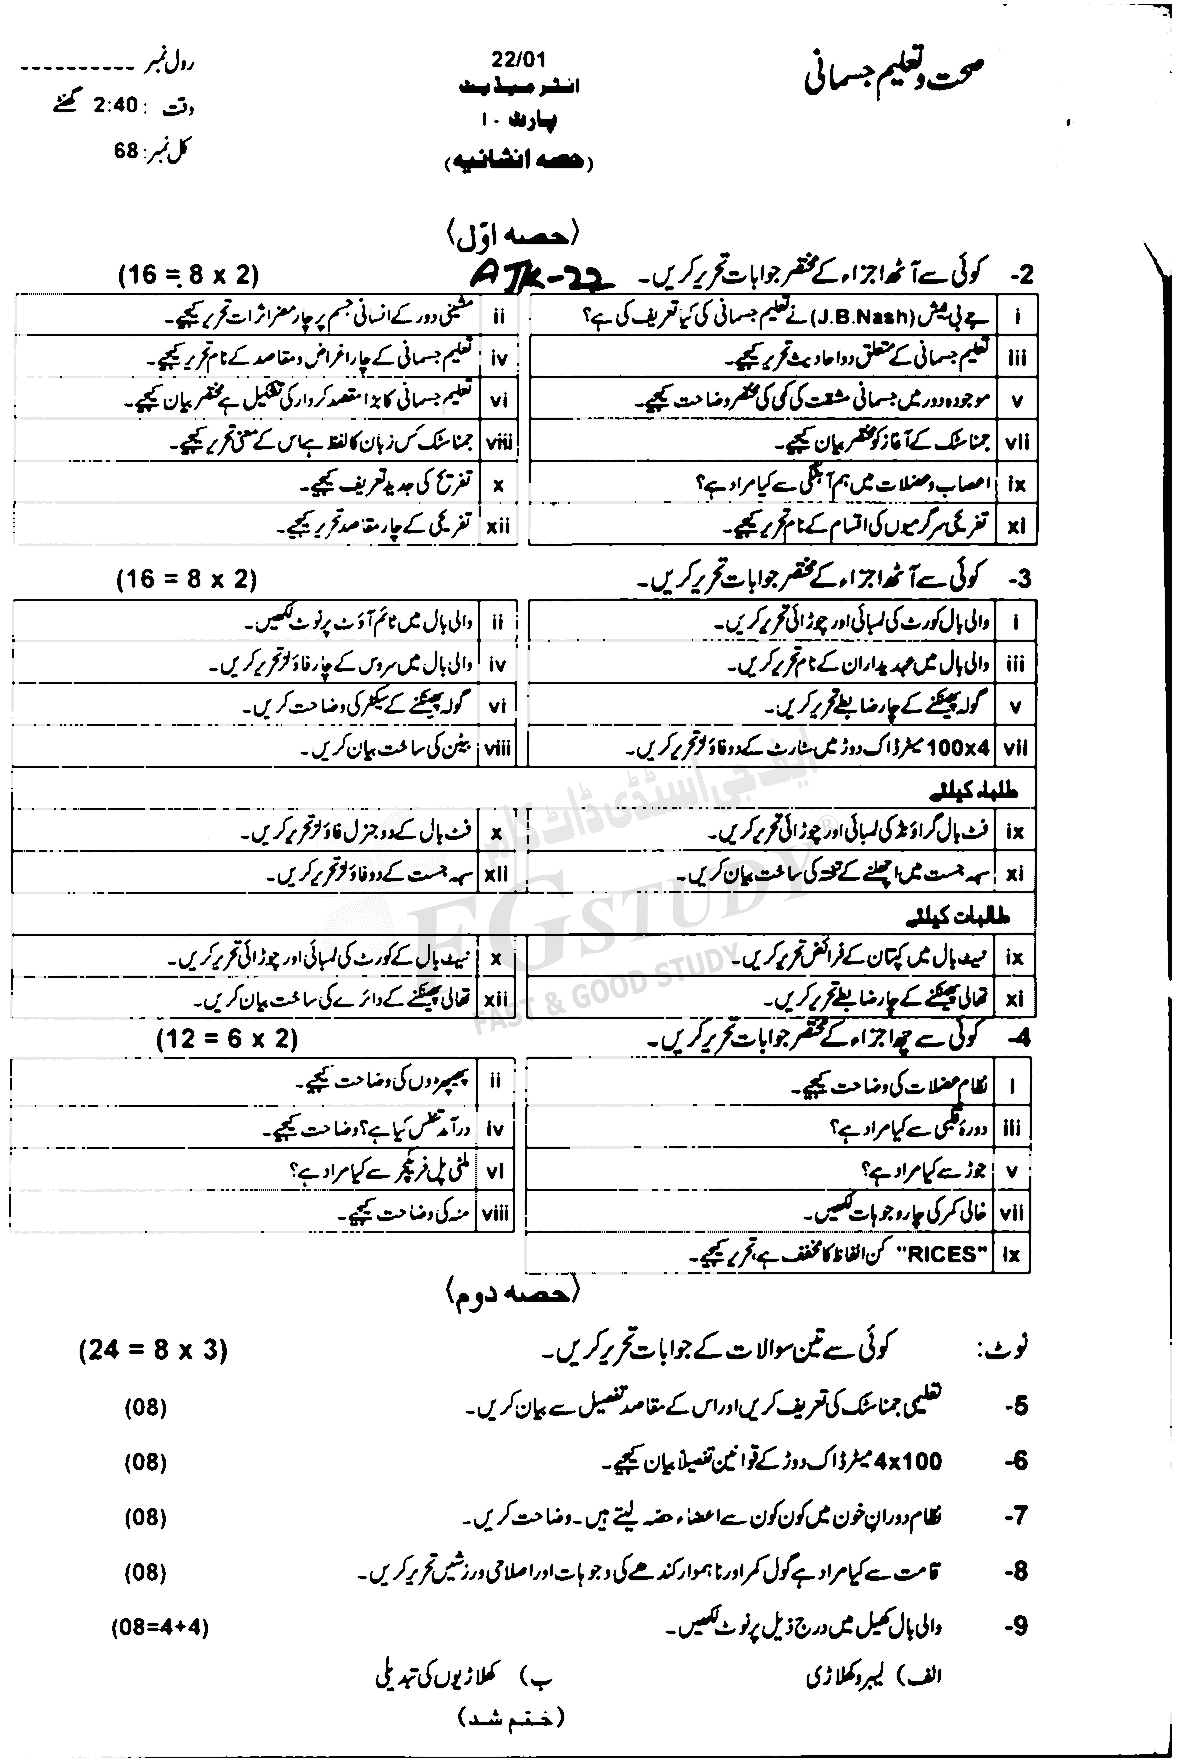 صحت و تعلیم جسمانی
22/01
انٹرمیڈیٹ
پارٹ ۱۰
(حصہ انشائیہ)
رول نمبر ----------
وقت : 2:40 گھنٹے
کل نمبر: 68
(حصہ اوّل)
2- کوئی سے آٹھ اجزاء کے مختصر جوابات تحریر کریں۔ AJK-22 (16 = 8 x 2)
i جے بی نیش (J.B.Nash) نے تعلیم جسمانی کی کیا تعریف کی ہے؟
ii مشینی دور کے انسانی جسم پر چار مضر اثرات تحریر کیجیے۔
iii تعلیم جسمانی کے متعلق دو احادیث تحریر کیجیے۔
iv تعلیم جسمانی کے چار اغراض و مقاصد کے نام تحریر کیجیے۔
v موجودہ دور میں جسمانی مشقت کی کمی کی مختصر وضاحت کیجیے۔
vi تعلیم جسمانی کا بڑا مقصد کردار کی تشکیل ہے مختصر بیان کیجیے۔
vii جمناسٹک کے آغاز کو مختصر بیان کیجیے۔
viii جمناسٹک کس زبان کا لفظ ہے اس کے معنی تحریر کیجیے۔
ix اعصاب و عضلات میں ہم آہنگی سے کیا مراد ہے؟
x تفریح کی جدید تعریف کیجیے۔
xi تفریحی سرگرمیوں کی اقسام کے نام تحریر کیجیے۔
xii تفریحی کے چار مقاصد تحریر کیجیے۔
3- کوئی سے آٹھ اجزاء کے مختصر جوابات تحریر کریں۔ (16 = 8 x 2)
i والی بال کورٹ کی لمبائی اور چوڑائی تحریر کریں۔
ii والی بال میں ٹائم آؤٹ پر نوٹ لکھیں۔
iii والی بال میں عہدیداران کے نام تحریر کریں۔
iv والی بال میں سروس کے چار فاؤلز تحریر کریں۔
v گولہ پھینکنے کے چار ضابطے تحریر کریں۔
vi گولہ پھینکنے کے سیکٹر کی وضاحت کریں۔
vii 100x4 میٹر ڈاک دوڑ میں سٹارٹ کے دو فاؤلز تحریر کریں۔
viii بیٹن کی ساخت بیان کریں۔
طلباء کیلئے
ix فٹ بال گراؤنڈ کی لمبائی اور چوڑائی تحریر کریں۔
x فٹ بال کے دو جنرل فاؤلز تحریر کریں۔
xi سہ جست میں اچھلنے کے تختہ کی ساخت بیان کریں۔
xii سہ جست کے دو فاؤلز تحریر کریں۔
طالبات کیلئے
ix نیٹ بال میں کپتان کے فرائض تحریر کریں۔
x نیٹ بال کے کورٹ کی لمبائی اور چوڑائی تحریر کریں۔
xi تھالی پھینکنے کے چار ضابطے تحریر کریں۔
xii تھالی پھینکنے کے دائرے کی ساخت بیان کریں۔
ایف جی اسٹڈی ڈاٹ کام
FGSTUDY®
FAST & GOOD STUDY
4- کوئی سے چھ اجزاء کے مختصر جوابات تحریر کریں۔ (12 = 6 x 2)
i نظام عضلات کی وضاحت کیجیے۔
ii پھیپھڑوں کی وضاحت کیجیے۔
iii دورۂ قلبی سے کیا مراد ہے؟
iv درآمد تنفس کیا ہے؟ وضاحت کیجیے۔
v جوڑ سے کیا مراد ہے؟
vi ملٹی پل فریکچر سے کیا مراد ہے؟
vii خالی کمر کی چار وجوہات لکھیں۔
viii منہ کی وضاحت کیجیے۔
ix "RICES" کن الفاظ کا مخفف ہے، تحریر کیجیے۔
(حصہ دوم)
نوٹ: کوئی سے تین سوالات کے جوابات تحریر کریں۔ (24 = 8 x 3)
5- تعلیمی جمناسٹک کی تعریف کریں اور اس کے مقاصد تفصیل سے بیان کریں۔ (08)
6- 4x100 میٹر ڈاک دوڑ کے قوانین تفصیلاً بیان کیجیے۔ (08)
7- نظام دورانِ خون میں کون کون سے اعضاء حصہ لیتے ہیں۔ وضاحت کریں۔ (08)
8- قامت سے کیا مراد ہے گول کمر اور ناہموار کندھے کی وجوہات اور اصلاحی ورزشیں تحریر کریں۔ (08)
9- والی بال کھیل میں درج ذیل پر نوٹ لکھیں۔ (08=4+4)
الف) لیبرو کھلاڑی ب) کھلاڑیوں کی تبدیلی
(ختم شد)